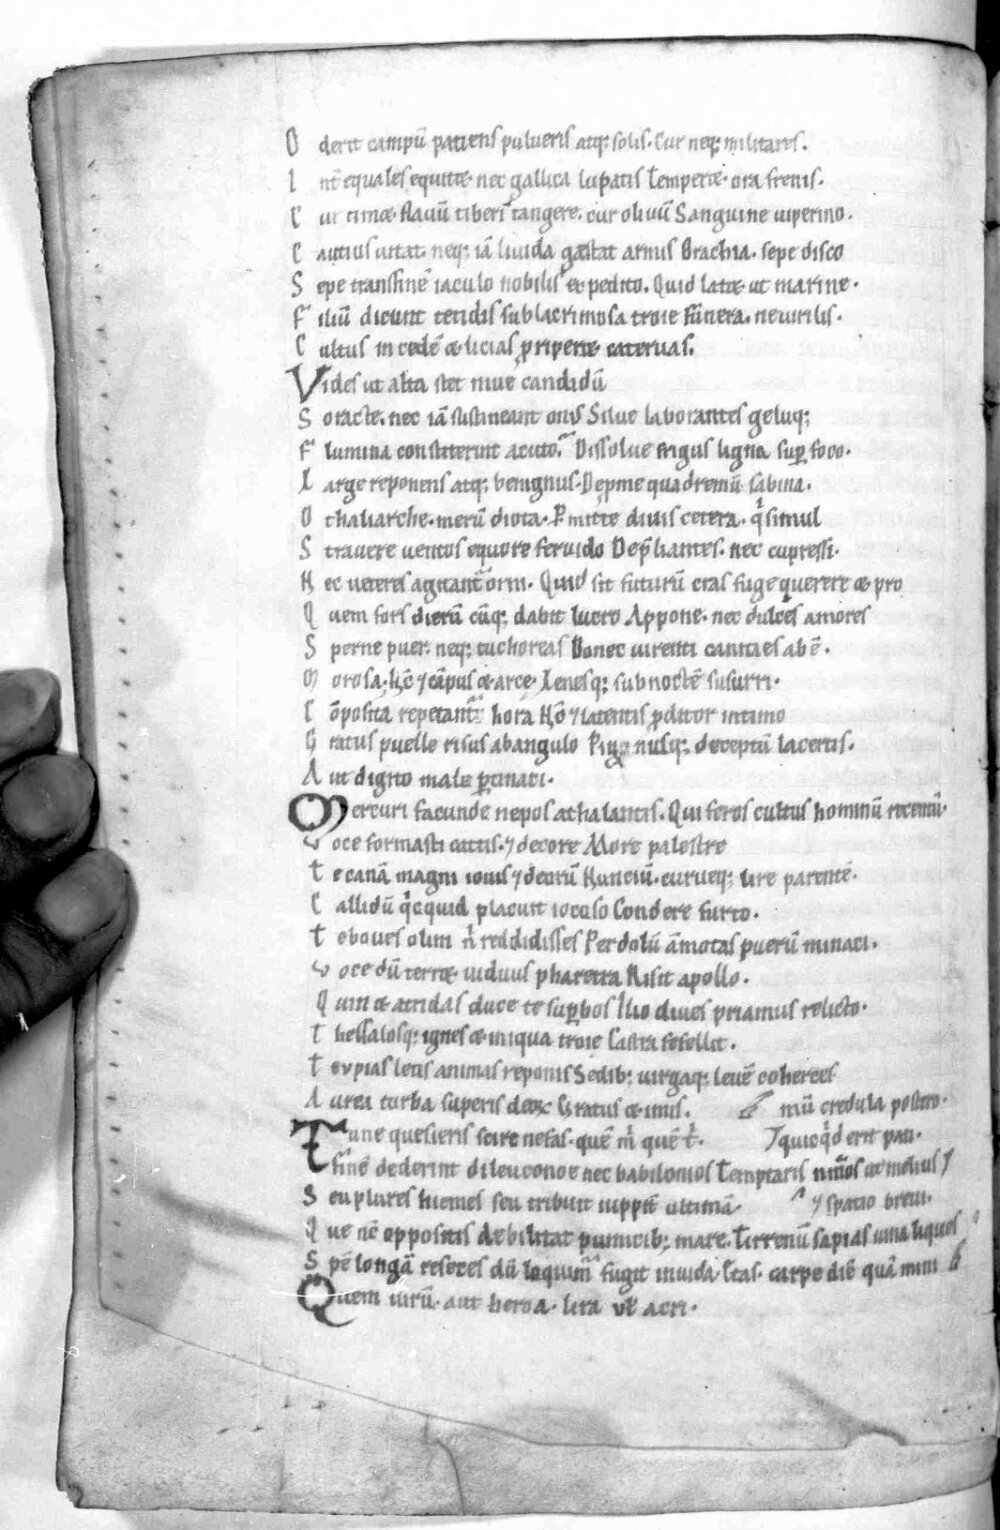 O derit campū patiens pulueris atq; solis. Cur neq; militaris.
I nt̄ equales equitæ. nec gallica lupatis Temperæ. ora frenis.
C ur timæ flauū tiberī tangere. cur oliuū Sanguine uiperino.
C autius uitat. neq; iā liuida gæstat armis Brachia. sepe disco
S epe transfinē iaculo nobilis expedito. Quid latæ. ut marine.
F iliū dicunt tetidis sub lacrimosa troie fūnera. ne uirilis.
C ultus in cedē æ licias ꝓriperæ cateruas.
Vides ut alta stet niue candidū
S oracte. nec iā sustineant onus Silue laborantes geluq;
F lumina constiterint acuto. Dissolue frigus ligna suꝑ foco.
L arge reponens atq; benignus. Depme quadremū sabina.
O thaliarche. merū diota. Pmitte diuis cetera. q̇ simul
S trauere uentos equore feruido Dep̄liantes. nec cupressi.
N ec ueteres agitant̄ orni. Quid sit futurū cras fuge querere æ pro
Q uem fors dierū cūq; dabit lucro Appone. nec dulces amores
S perne puer. neq; tu choreas Donec uirenti canities abē.
M orosa. hc̄ ⁊ cāpus æ arce. Lenesq; sub noctē susurri.
C ōposita repetant̄ hora Hc̄ ⁊ latentis ꝓditor intimo
G ratus puelle risus ab angulo Pignusq; deceptū lacertis.
A ut digito male ꝑtinaci.
Mercuri facunde nepos athalantis. Qui feros cultus hominū recentū.
V oce formasti cattis. ⁊ decore More palestre
T e canā magni iouis ⁊ deorū Nunciū. curueq; lire parentē.
C allidū q̇cquid placuit iocoso Condere furto.
T e boues olim n̄ reddidisses Per dolū āmotas puerū minaci.
V oce dū terræ uiduus pharetra Risit apollo.
Q uin æ atridas duce te suꝑbos Ilio diues priamus relicto.
T hessalosq; ignes æ iniqua troie Castra fefellit.
T u pias letis animas reponis Sedib; uirgaq; leuē coherces
A urea turba superis deoꝝ Gratus æ imis. mū credula postero.
Tu ne quesieris scire nefas. quē m̄ quē t̄. ⁊ quicq̇d erit pati.
finē dederint di leuconoe nec babilonios Temptaris nūm̄os ut melius ⁊
S eu plures hiemes seu tribuit iuppit̄ ultimā ⁊ spatio breui.
Q ue nc̄ oppositis debilitat pumicib; mare. Tirrenū sapias uina liques
S pē longā reseces dū loquim̄ fugit inuida. Etas. carpe diē quā mini
Quem uirū. aut heroa. lira ul̄ acri.